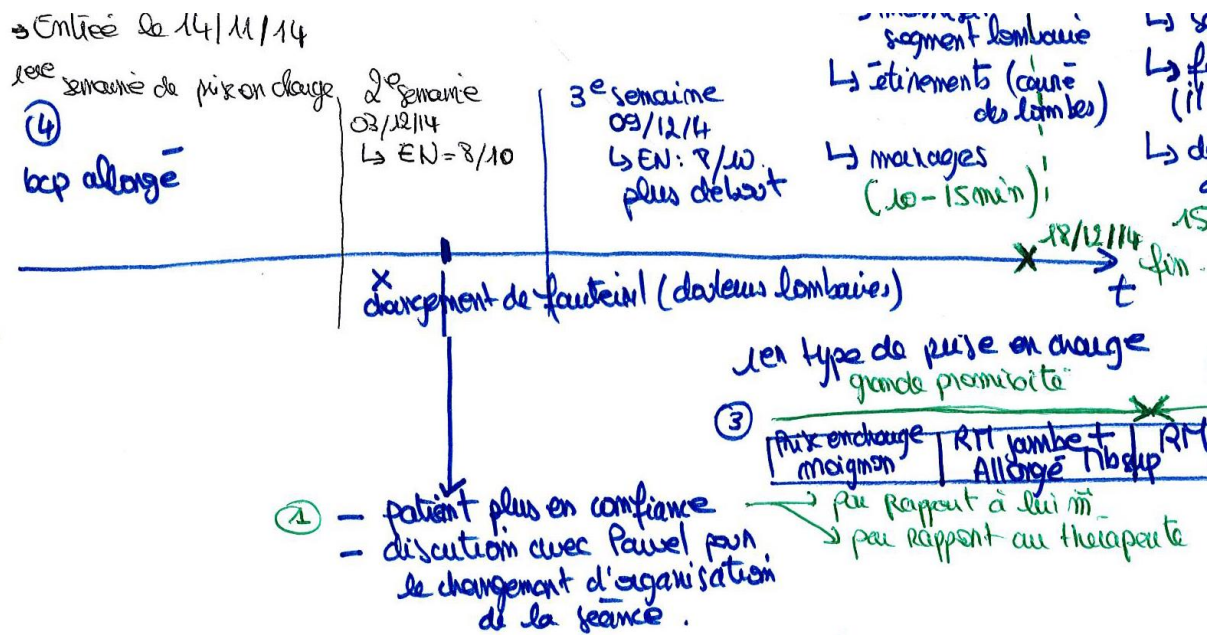 → Entrée le 14/11/14
1ere semaine de prise en charge
④
bcp allongé
2e semaine
03/12/14
↳ EN = 8/10
3e semaine
09/12/14
↳ EN : 8/10.
plus debout
segment lombaire
↳ étirements (carré
des lombes)
↳ massages
(10-15 min)
18/12/14
fin
t
x
changement de fauteuil (douleurs lombaires)
1er type de prise en charge
grande promixité
③
Prise en charge
moignon
RM jambe +
Allongé Mbsup
RM
① – patient plus en confiance
→ par rapport à lui m̄
→ par rapport au thérapeute
– discution avec Pawel pour
le changement d'organisation
de la séance.